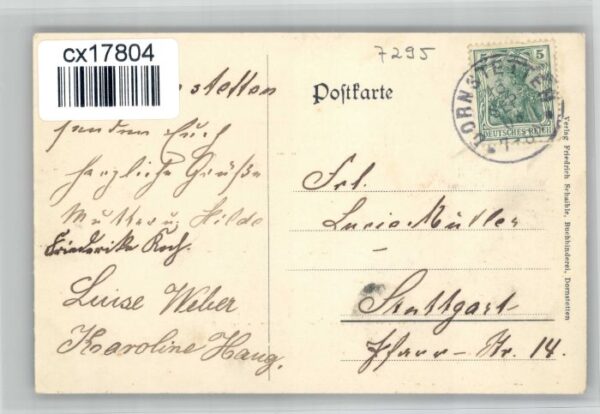 cx17804
7295
Postkarte
5
DORNSTETTEN
DEUTSCHES REICH
stetten
senden Euch
herzliche Grüße
Mutter u. Hilde
Friederike Koch.
Luise Weber
Karoline Haug.
Frl.
Lucie Müller
Stuttgart
Pfarr-Str. 14.
Verlag Friedrich Schaible, Buchbinderei, Dornstetten